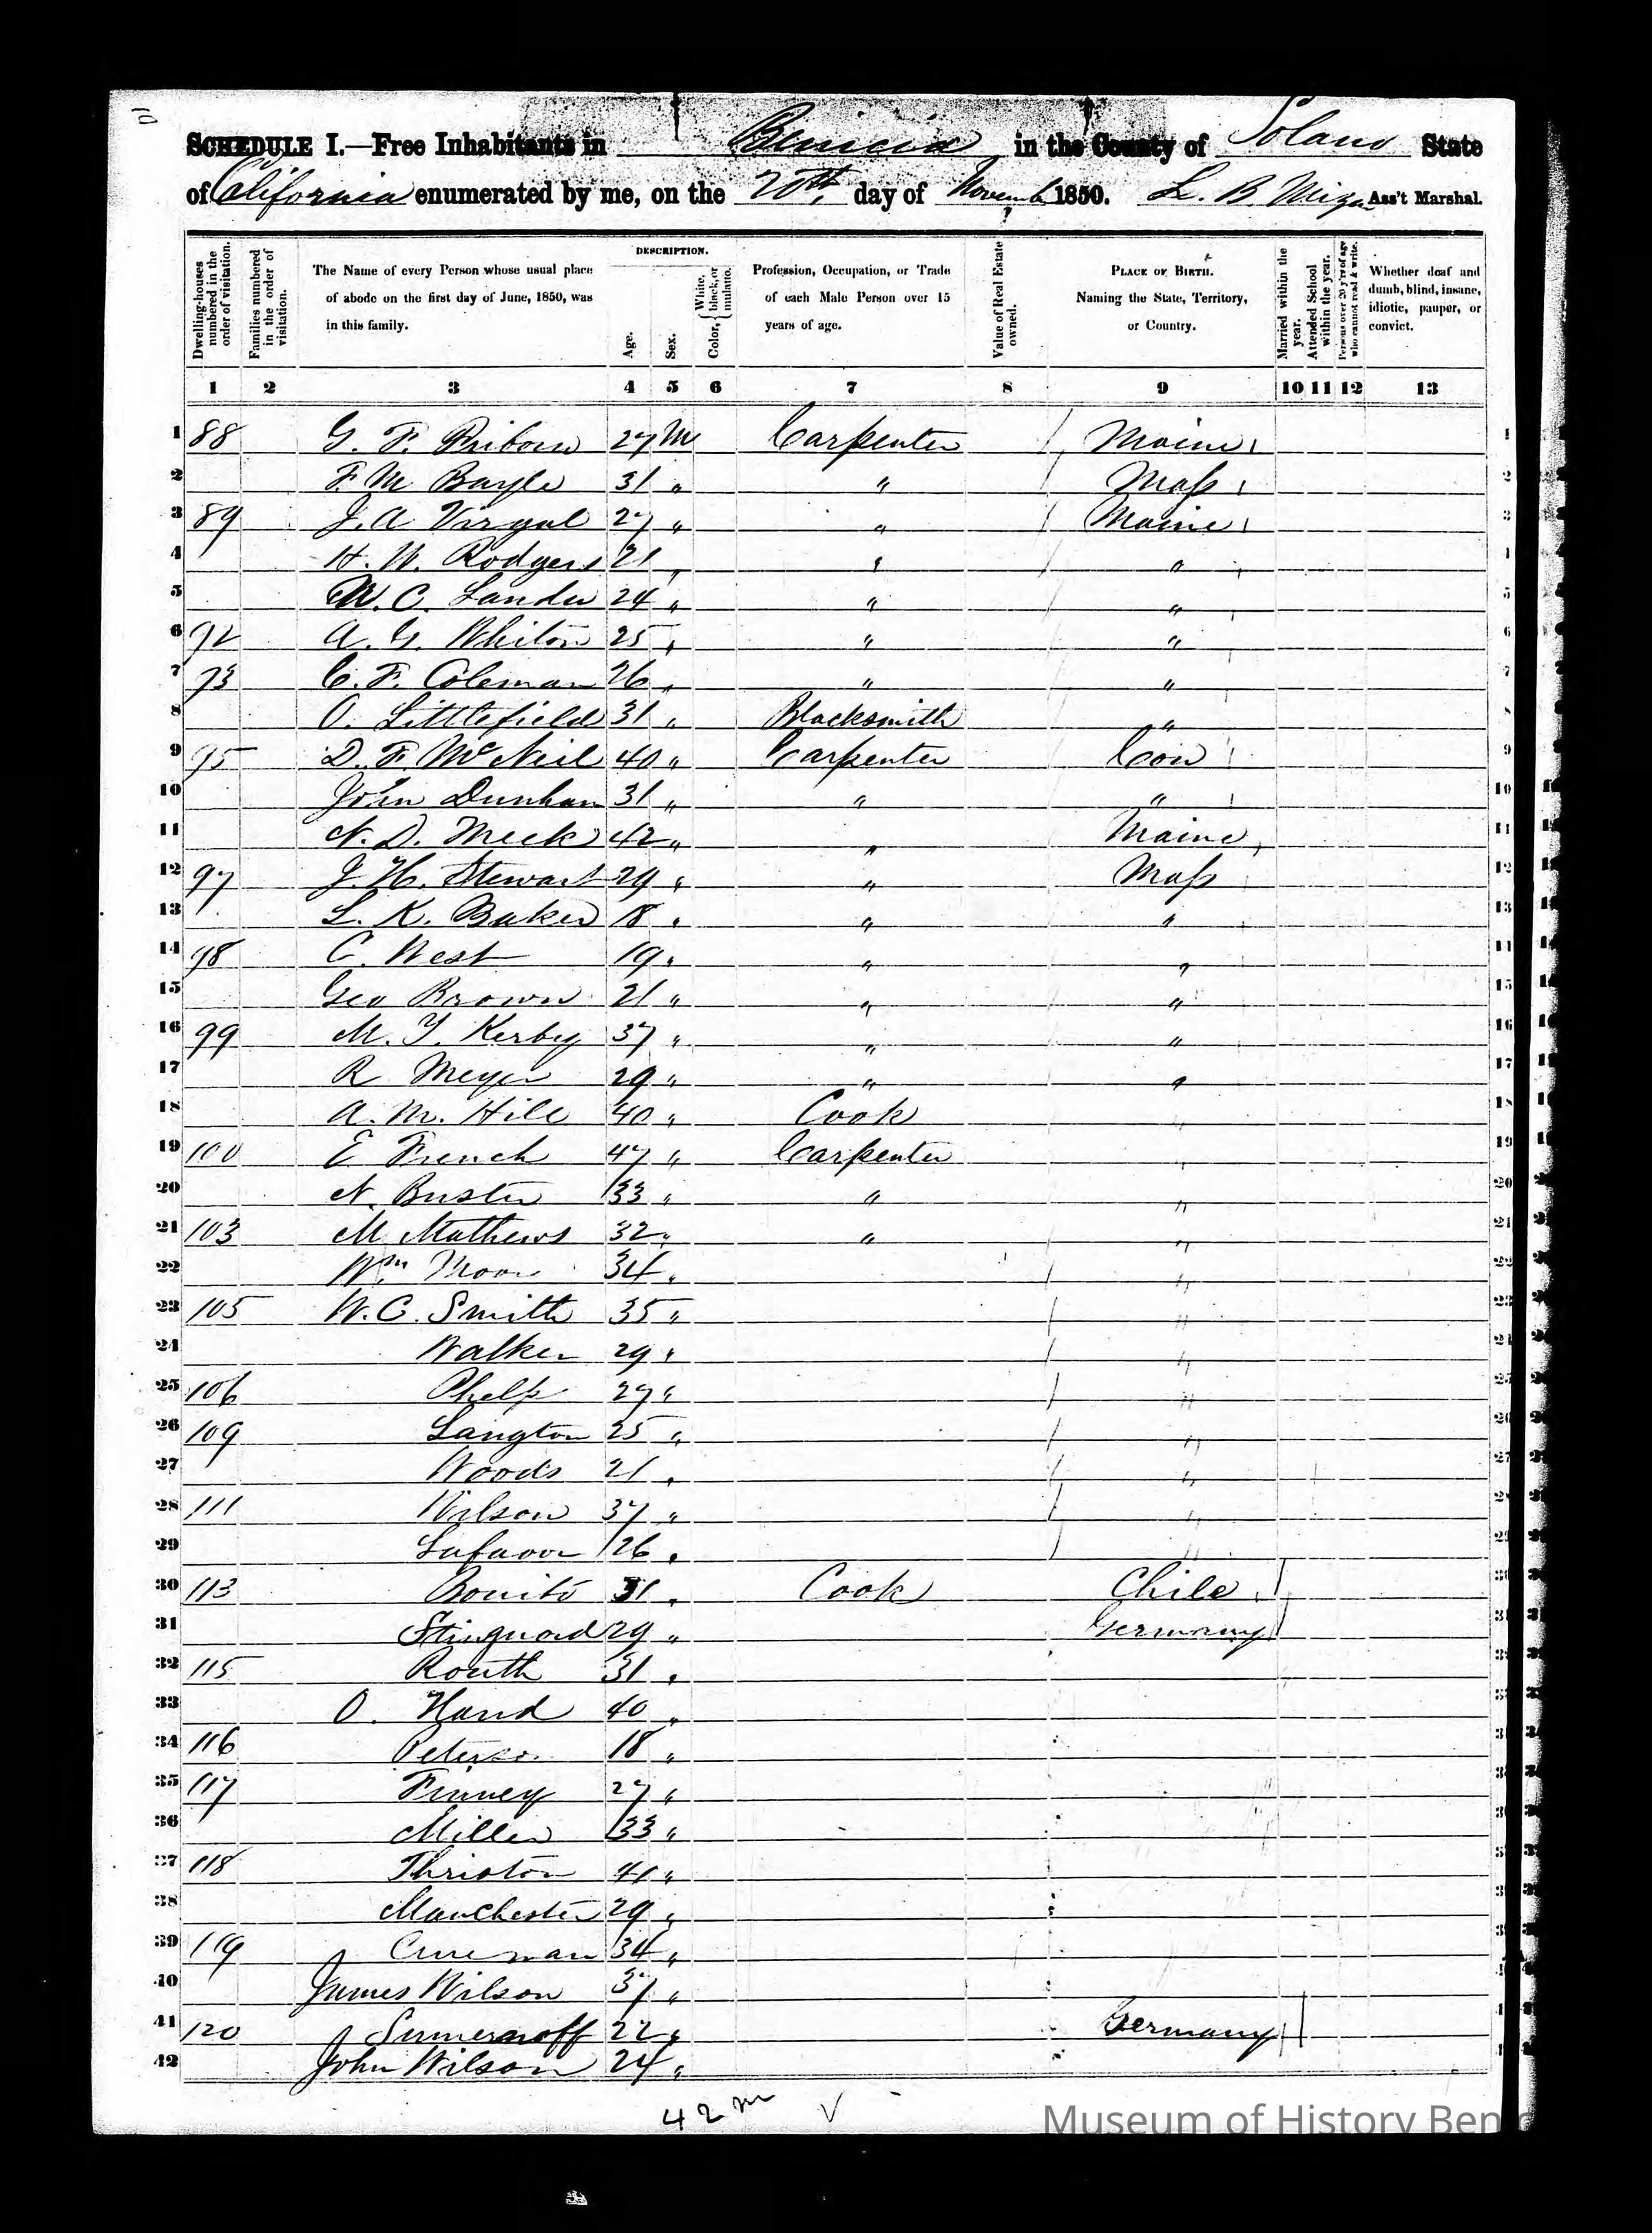 SCHEDULE I.—Free Inhabitants in Benicia in the County of Solano State
of California enumerated by me, on the 20th, day of Novemb 1850. L. B. Mizn Ass't Marshal.
Dwelling-houses numbered in the order of visitation.
Families numbered in the order of visitation.
The Name of every Person whose usual place of abode on the first day of June, 1850, was in this family.
DESCRIPTION.
Age.
Sex.
Color, { White, black, or mulatto.
Profession, Occupation, or Trade of each Male Person over 15 years of age.
Value of Real Estate owned.
PLACE OF BIRTH. Naming the State, Territory, or Country.
Married within the year.
Attended School within the year.
Persons over 20 y'rs of age who cannot read & write.
Whether deaf and dumb, blind, insane, idiotic, pauper, or convict.
1 2 3 4 5 6 7 8 9 10 11 12 13
1 88 G. F. 27 M Carpenter Maine 1
2 F. M Bayle 31 " " Mass 2
3 89 J. A Virgal 27 " " Maine 3
4 H. W. Rodgers 21 " " "
5 W. C. Lander 24 " " " 5
6 92 A. G. Whiton 25 " " " 6
7 93 C. F. Coleman 26 " " " 7
8 O. Littlefield 31 " Blacksmith " 8
9 95 D. F. McNeil 40 " Carpenter Con 9
10 John Dunham 31 " " " 10
11 N. D. Meek 42 " " Maine 11
12 97 J. H. Stewart 29 " " Mass 12
13 L. K. Baker 18 " " " 13
14 98 C. West 19 " " "
15 Geo Brown 21 " " " 15
16 99 M. Y. Kerby 37 " " " 16
17 R Meyer 29 " " " 17
18 A. M. Hill 40 " Cook " 18
19 100 E French 47 " Carpenter " 19
20 N. Buster 33 " " " 20
21 103 M Mathews 32 " " " 21
22 Wm. Moon 34 " " 22
23 105 W. C. Smith 35 " " 23
24 Walker 29 " "
25 106 Phelps 27 " "
26 109 Langton 25 " "
27 Woods 21 " "
28 111 Wilson 37 " "
29 Lafavor 26 " "
30 113 Bonito 31 " Cook Chile
31 29 " Germany
32 115 Routh 31 "
33 O. Hand 40 "
34 116 Peterson 18 "
35 117 Finney 27 "
36 Miller 33 "
37 118 Thriston 41 "
38 Manchester 29 "
39 119 34 "
40 James Wilson 37 "
41 120 22 " Germany
42 John Wilson 24 "
42 m
Museum of History Ben